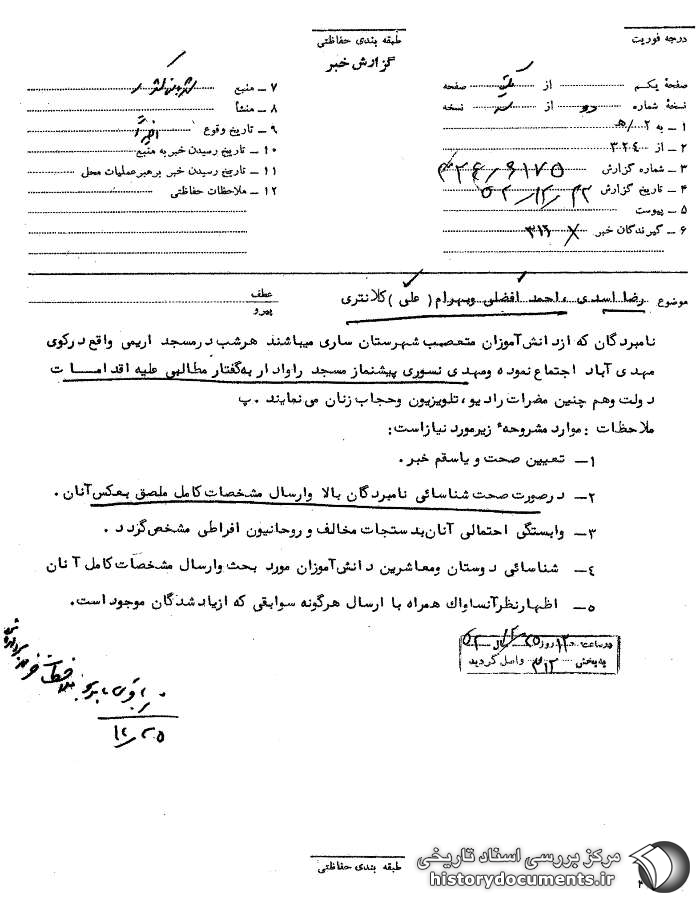 درجه فوریت
طبقه بندی حفاظتی
گزارش خبر
صفحهٔ یکم از یک صفحه
نسخهٔ شماره دو از سه نسخه
۱ ــ به ۲/هـ
۲ ــ از ۳۲٤
۳ ــ شماره گزارش
٤ ــ تاریخ گزارش
۵ ــ پیوست
۶ ــ گیرندگان خبر ۳۱۲
۷ ــ منبع
۸ ــ منشأ
۹ ــ تاریخ وقوع اخیراً
۱۰ ــ تاریخ رسیدن خبر به منبع
۱۱ ــ تاریخ رسیدن خبر برهبر عملیات محل
۱۲ ــ ملاحظات حفاظتی
موضوع رضا اسدی ، احمد افضلی وبهرام ( علی ) کلانتری
عطف
پیرو
نامبردگان که ازدانش‌آموزان متعصب شهرستان ساری میباشند هرشب درمسجد اریمی واقع درکوی
مهدی آباد اجتماع نموده ومهدی نسوری پیشنماز مسجد راوادار به‌گفتار مطالبی علیه اقدامــــات
دولت وهم چنین مضرات رادیو، تلویزیون وحجاب زنان می نمایند . پ
ملاحظات : موارد مشروحهٔ زیرمورد نیازاست:
۱ــ تعیین صحت و یاسقم خبر .
۲ــ درصورت صحت شناسائی نامبردگان بالا وارسال مشخصات کامل ملصق بعکس آنان .
۳ــ وابستگی احتمالی آنان بدستجات مخالف و روحانیون افراطی مشخص گردد .
٤ــ شناسائی دوستان ومعاشرین دانش‌آموزان مورد بحث وارسال مشخصات کامل آنان
۵ــ اظهارنظرآنساواك همراه با ارسال هرگونه سوابقی که ازیادشدگان موجود است.
درساعت ۱۲ روز سال
به‌بخش ۳۱۲ واصل گردید
طبقه بندی حفاظتی
مرکز بررسی اسناد تاریخی
historydocuments.ir